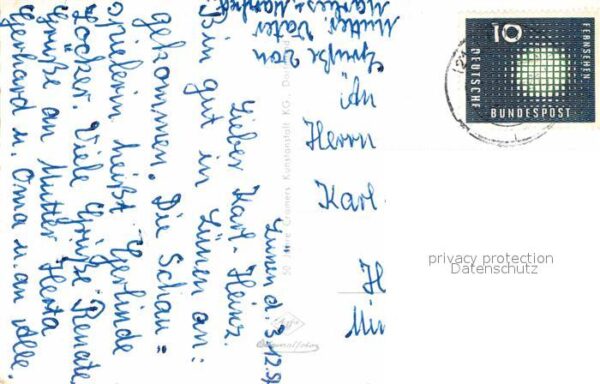 Lünen d. 3.12.5
Lieber Karl-Heinz.
Bin gut in Lünen an:
gekommen. Die Schau:
spielerin heißt Gerlinde
Locker. Viele Grüße Renate
Grüße an Mutter Herta
Gerhard u. Oma u. an Alle.
Grüße von
Mutter Vater
An
Herrn
Karl-
H
50 Jahre Cramers Kunstanstalt KG., Dortmund
10
FERNSEHEN
DEUTSCHE
BUNDESPOST
privacy protection
Datenschutz